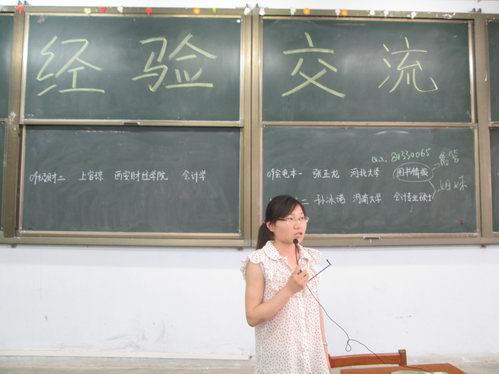 经验交流
09经财二 上官琼 西安财经学院 会计学
QQ: 80330065
09会电本一 张玉龙 河北大学 图书情报
二 孙冰洁 河南大学 会计专业硕士